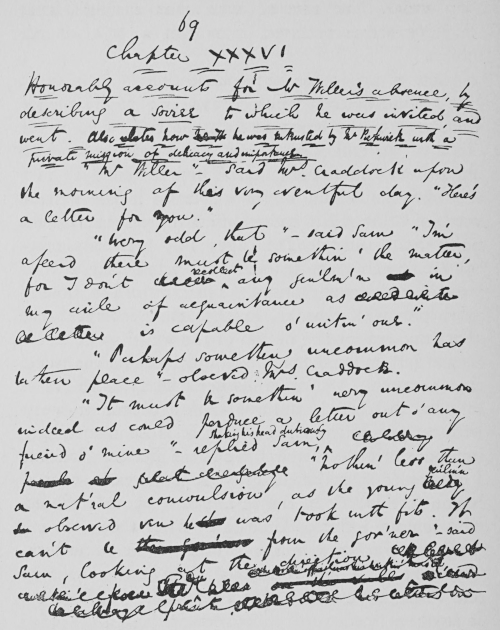 69
Chapter XXXVI
Honorably accounts for Mr Weller's absence, by
describing a soiree to which he was invited and
went. Also relates how he was intrusted by Mr Pickwick with a
private mission of delicacy and importance
"Mr Weller" - said Mrs Craddock upon
the morning of this very eventful day. "Here's
a letter for you."
"Wery odd, that" - said Sam "I'm
afeerd there must be somethin' the matter,
for I don't recollect any gen'lm'n in
my circle of acquaintance as
is capable o' writin' one."
"Perhaps something uncommon has
taken place" - observed Mrs Craddock.
"It must be somethin' wery uncommon
indeed as could produce a letter out o' any
friend o' mine" - replied Sam, shaking his head dubiously
"nothin' less than
a nat'ral conwulsion, as the young gen'lm'n
observed ven he was took with fits. It
can't be from the gov'ner" - said
Sam, looking at the direction